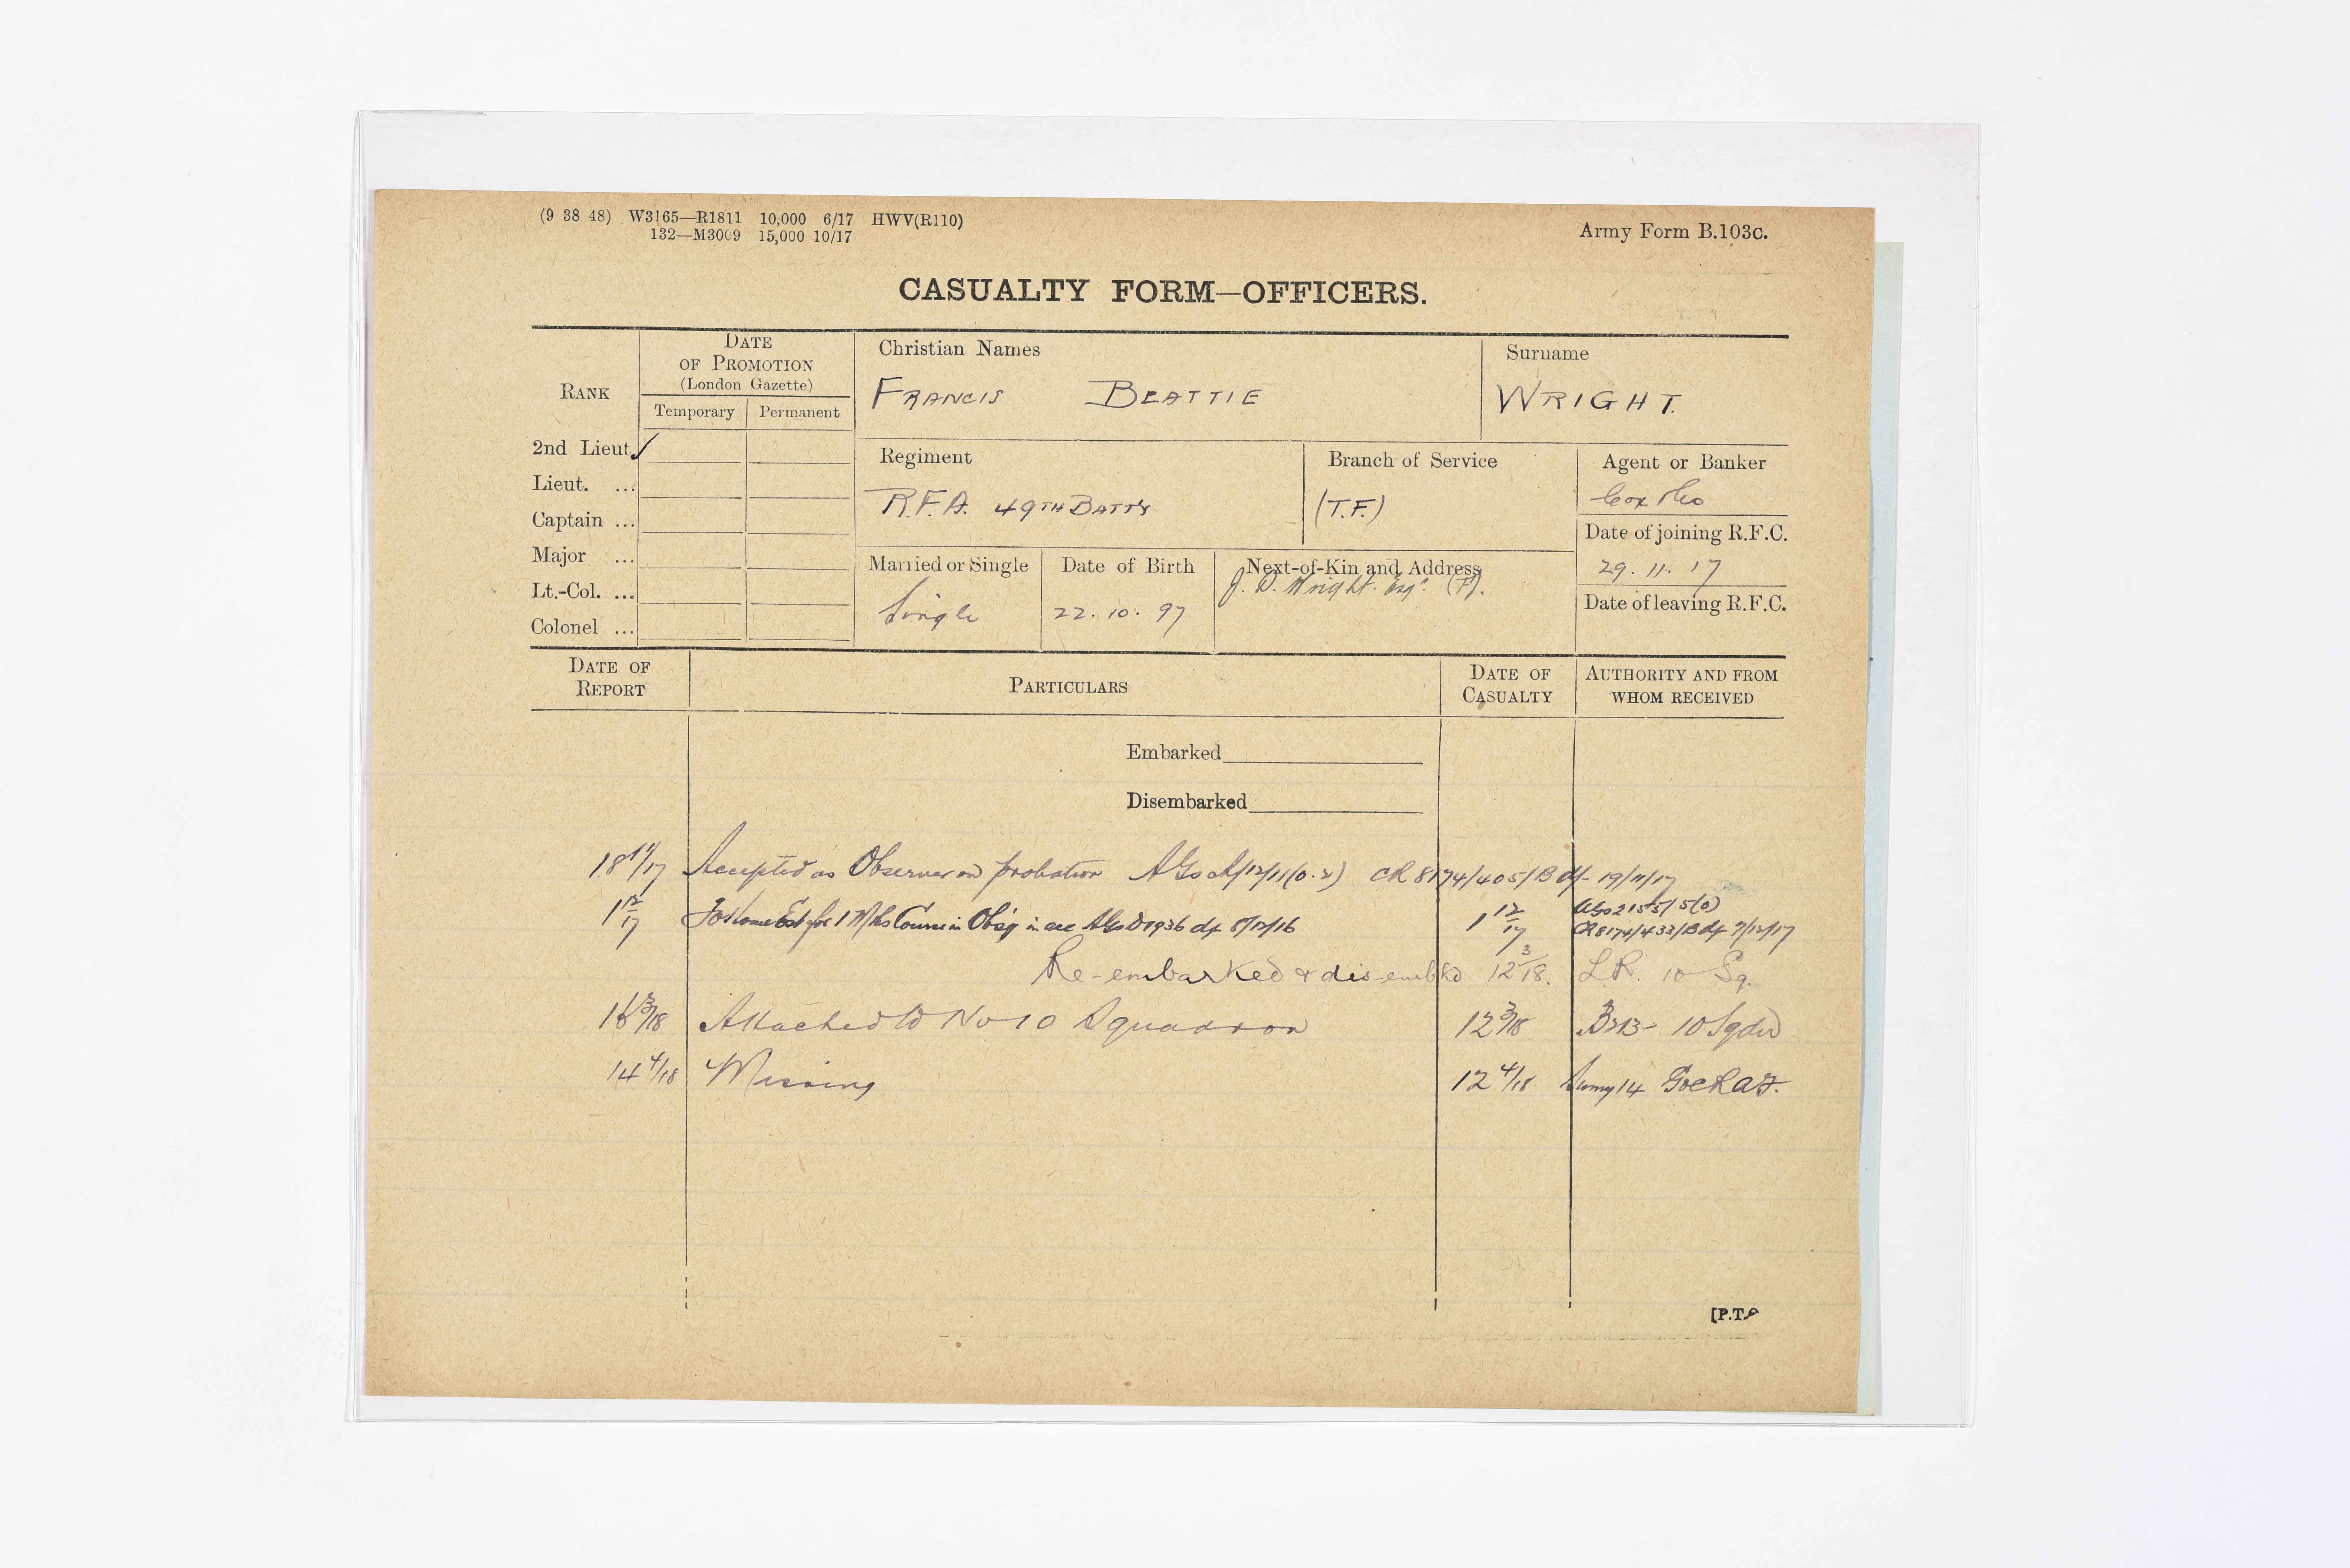 (9 38 48) W3165—R1811 10,000 6/17 HWV(R110)
132—M3009 15,000 10/17
Army Form B.103c.
CASUALTY FORM—OFFICERS.
RANK
DATE OF PROMOTION (London Gazette)
Temporary Permanent
2nd Lieut. ✓
Lieut. ...
Captain ...
Major ...
Lt.-Col. ...
Colonel ...
Christian Names
FRANCIS BEATTIE
Surname
WRIGHT.
Regiment
R.F.A. 49TH BATTY
Branch of Service
(T.F.)
Agent or Banker
Cox & Co
Date of joining R.F.C.
29. 11. 17
Date of leaving R.F.C.
Married or Single
Single
Date of Birth
22. 10. 97
Next-of-Kin and Address
J. D. Wright. Esqr. (F).
DATE OF REPORT
PARTICULARS
DATE OF CASUALTY
AUTHORITY AND FROM WHOM RECEIVED
Embarked
Disembarked
18 11/17 Accepted as Observer on probation AGs A/12/11(0.2) CR 8174/405/B df 19/11/17
1 12/17 To Home Est for 1 Mths Course in Obsg in acc AGs D1936 df 8/12/16 1 12/17 AGs 2155/5(0)
CR 8174/433/B df 7/12/17
Re-embarked & disembkd 12 3/18. L.R. 10 Sq.
3/18 Attached to No 10 Squadron 12 3/18 B213- 10 Sqdn
14 4/18 Missing 12 4/18 Army 14 GOC RAF.
[P.T.O